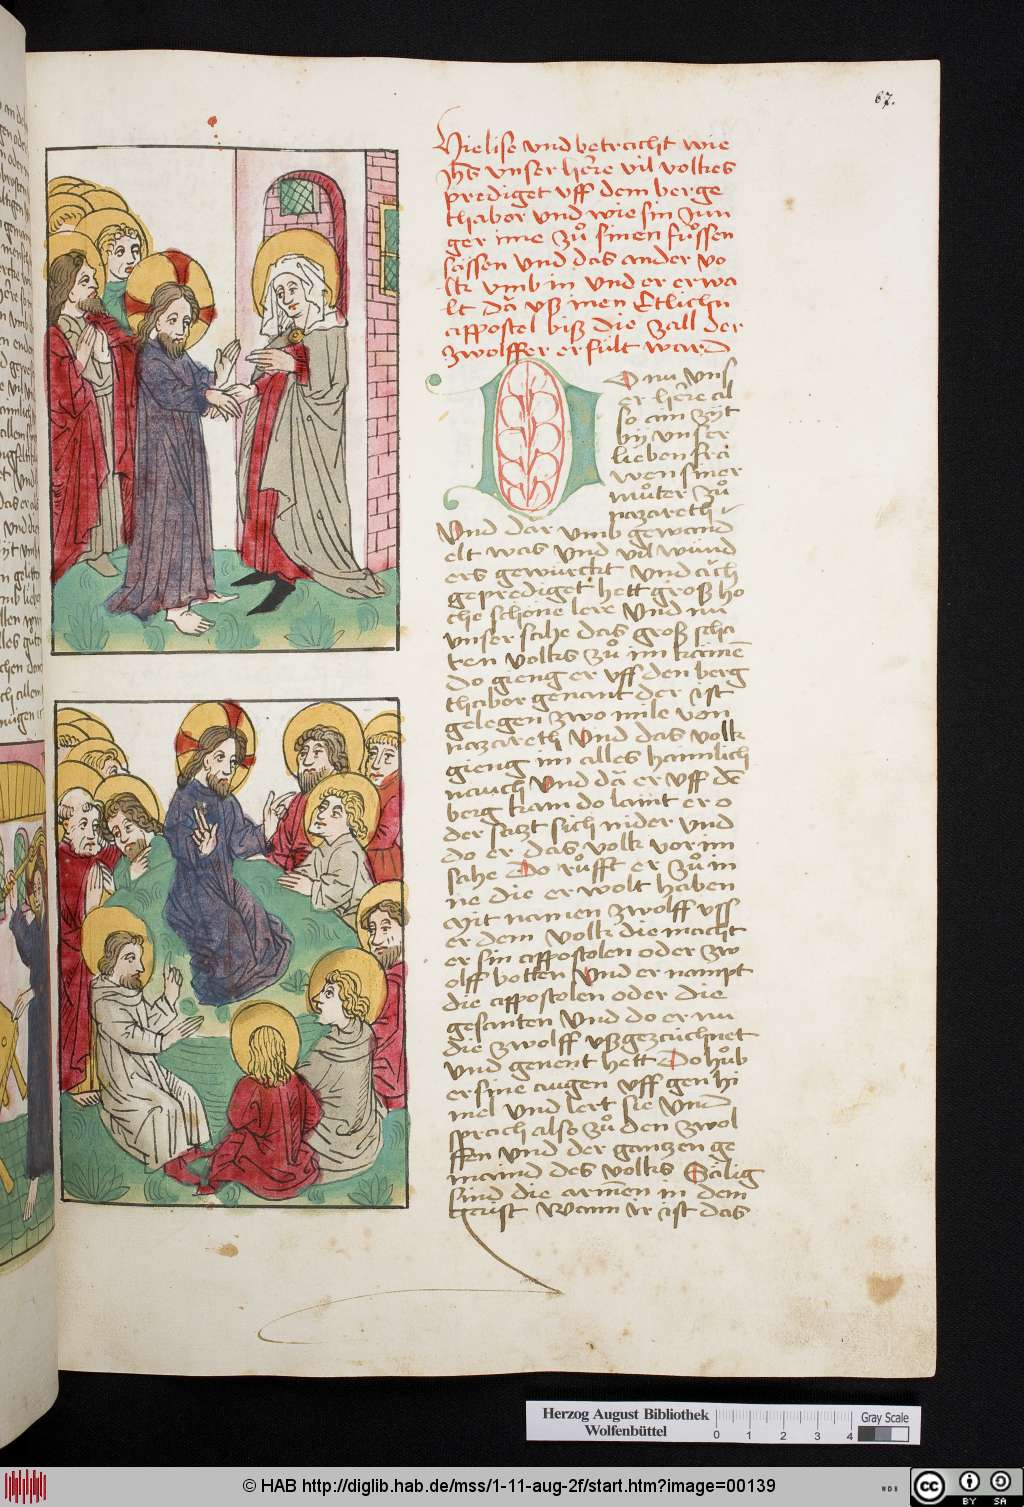 67.
Hie lise vnd betracht wie
Jhs vnser herre vil volkes
prediget vff dem berge
thabor vnd wie sin Jun
ger ime zů sinen fůssen
sassen vnd das ander vo
lk vmb in und er erwa
lt dā vß inen Etlich
appostel biß die zall der
zwolffer erfült ward
Do nu vns
er herre al
so ain zÿt
bÿ vnser
lieben frā
wen siner
můter zů
nazareth
Vnd dār vmb gewand
elt was vnd vil wund
ers gewürckt vnd āch
geprediget hett groß ho
che schöne lere vnd nu
vnser sahe das groß scha
ten volks zů im kamē
do gieng er vff den berg
thabor genant der ist
gelegen zwo mile von
nazareth Vnd das volk
gieng im alles haimlich
nauch Vnd dā er vff dē
berg kam do laint er o
der sazt sich nider vnd
do er das volk vor im
sahe Do růfft er zů in
ne die er wolt haben
Mit namen zwolff vss
er dem volk die macht
er sin appostolen oder zw
olff botten Vnd er nampt
die appostolen oder die
gesanten Vnd do er nu
die zwolff vßgezaichnet
vnd genent hett Do hůb
er sine augen vff gen hi
mel vnd lert sie Vnd
sprach also zů den zwol
ffen vnd der gantzen ge
maind des volks Sālig
sind die armen in dem
gaist Wann ir ist das
Herzog August Bibliothek
Wolfenbüttel
0 1 2 3 4
Gray Scale
© HAB http://diglib.hab.de/mss/1-11-aug-2f/start.htm?image=00139
WDB
cc BY SA